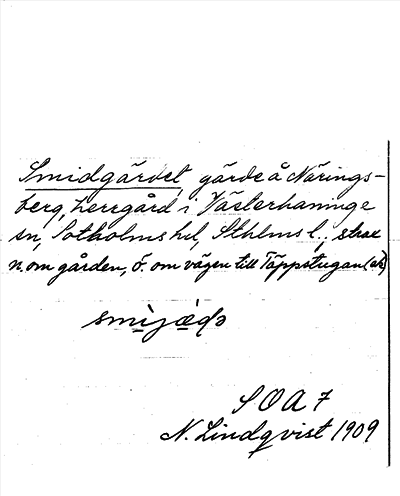 Smidgärdet, gärde å Närings-
berg, herrgård i Västerhaninge
sn, Sotholms hd, Sthlms l.; strax
n. om gården, ö. om vägen till Täppstugan (ak)
smìjæ̀ḍə
SOA 7
N. Lindqvist 1909